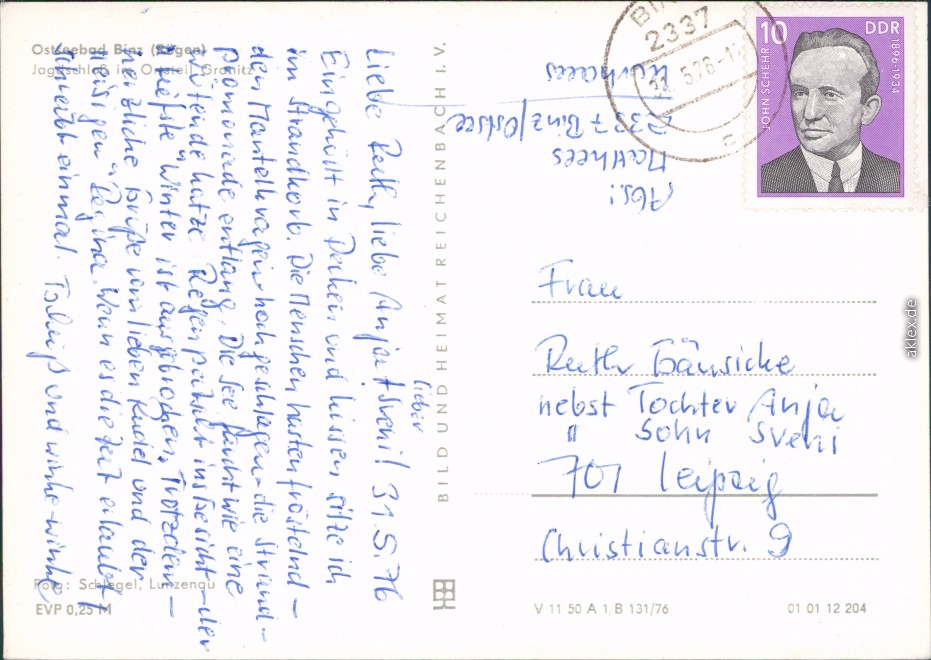 Ostseebad Binz (Rügen)
Jagdschloß im Ortsteil Granitz
Liebe Ruth, liebe Anja + lieber Sven! 31.5.76
Eingehüllt in Decken und Kissen sitze ich
im Strandkorb. Die Menschen hasten fröstelnd –
den Mantelkragen hochgeschlagen – die Strand-
promenade entlang. Die See faucht wie eine
wütende Katze. Regen peitscht ins Gesicht – der
tiefste Winter ist ausgebrochen. Trotzdem –
herzliche Grüße vom lieben Rudel und der
"heisigen" Regina. Wenn es die Zeit erlaubt,
schreibt einmal. Tschüß und winke-winke
Foto: Schlegel, Lunzenau
EVP 0,25 M
BILD UND HEIMAT REICHENBACH I. V.
Abs!
Matthees
2337 Binz/Ostsee
Kurhaus
BIN
2337
5.76-1
c
10
DDR
JOHN SCHEHR
1896-1934
Frau
Ruth Gänsicke
nebst Tochter Anja
" Sohn Sven
701 Leipzig
Christianstr. 9
V 11 50 A 1 B 131/76
01 01 12 204
aklex.de